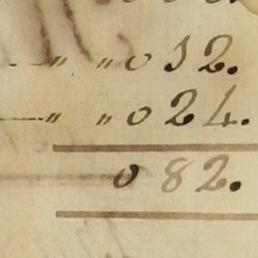 " " 0 12.
" " 0 24.
0 82.